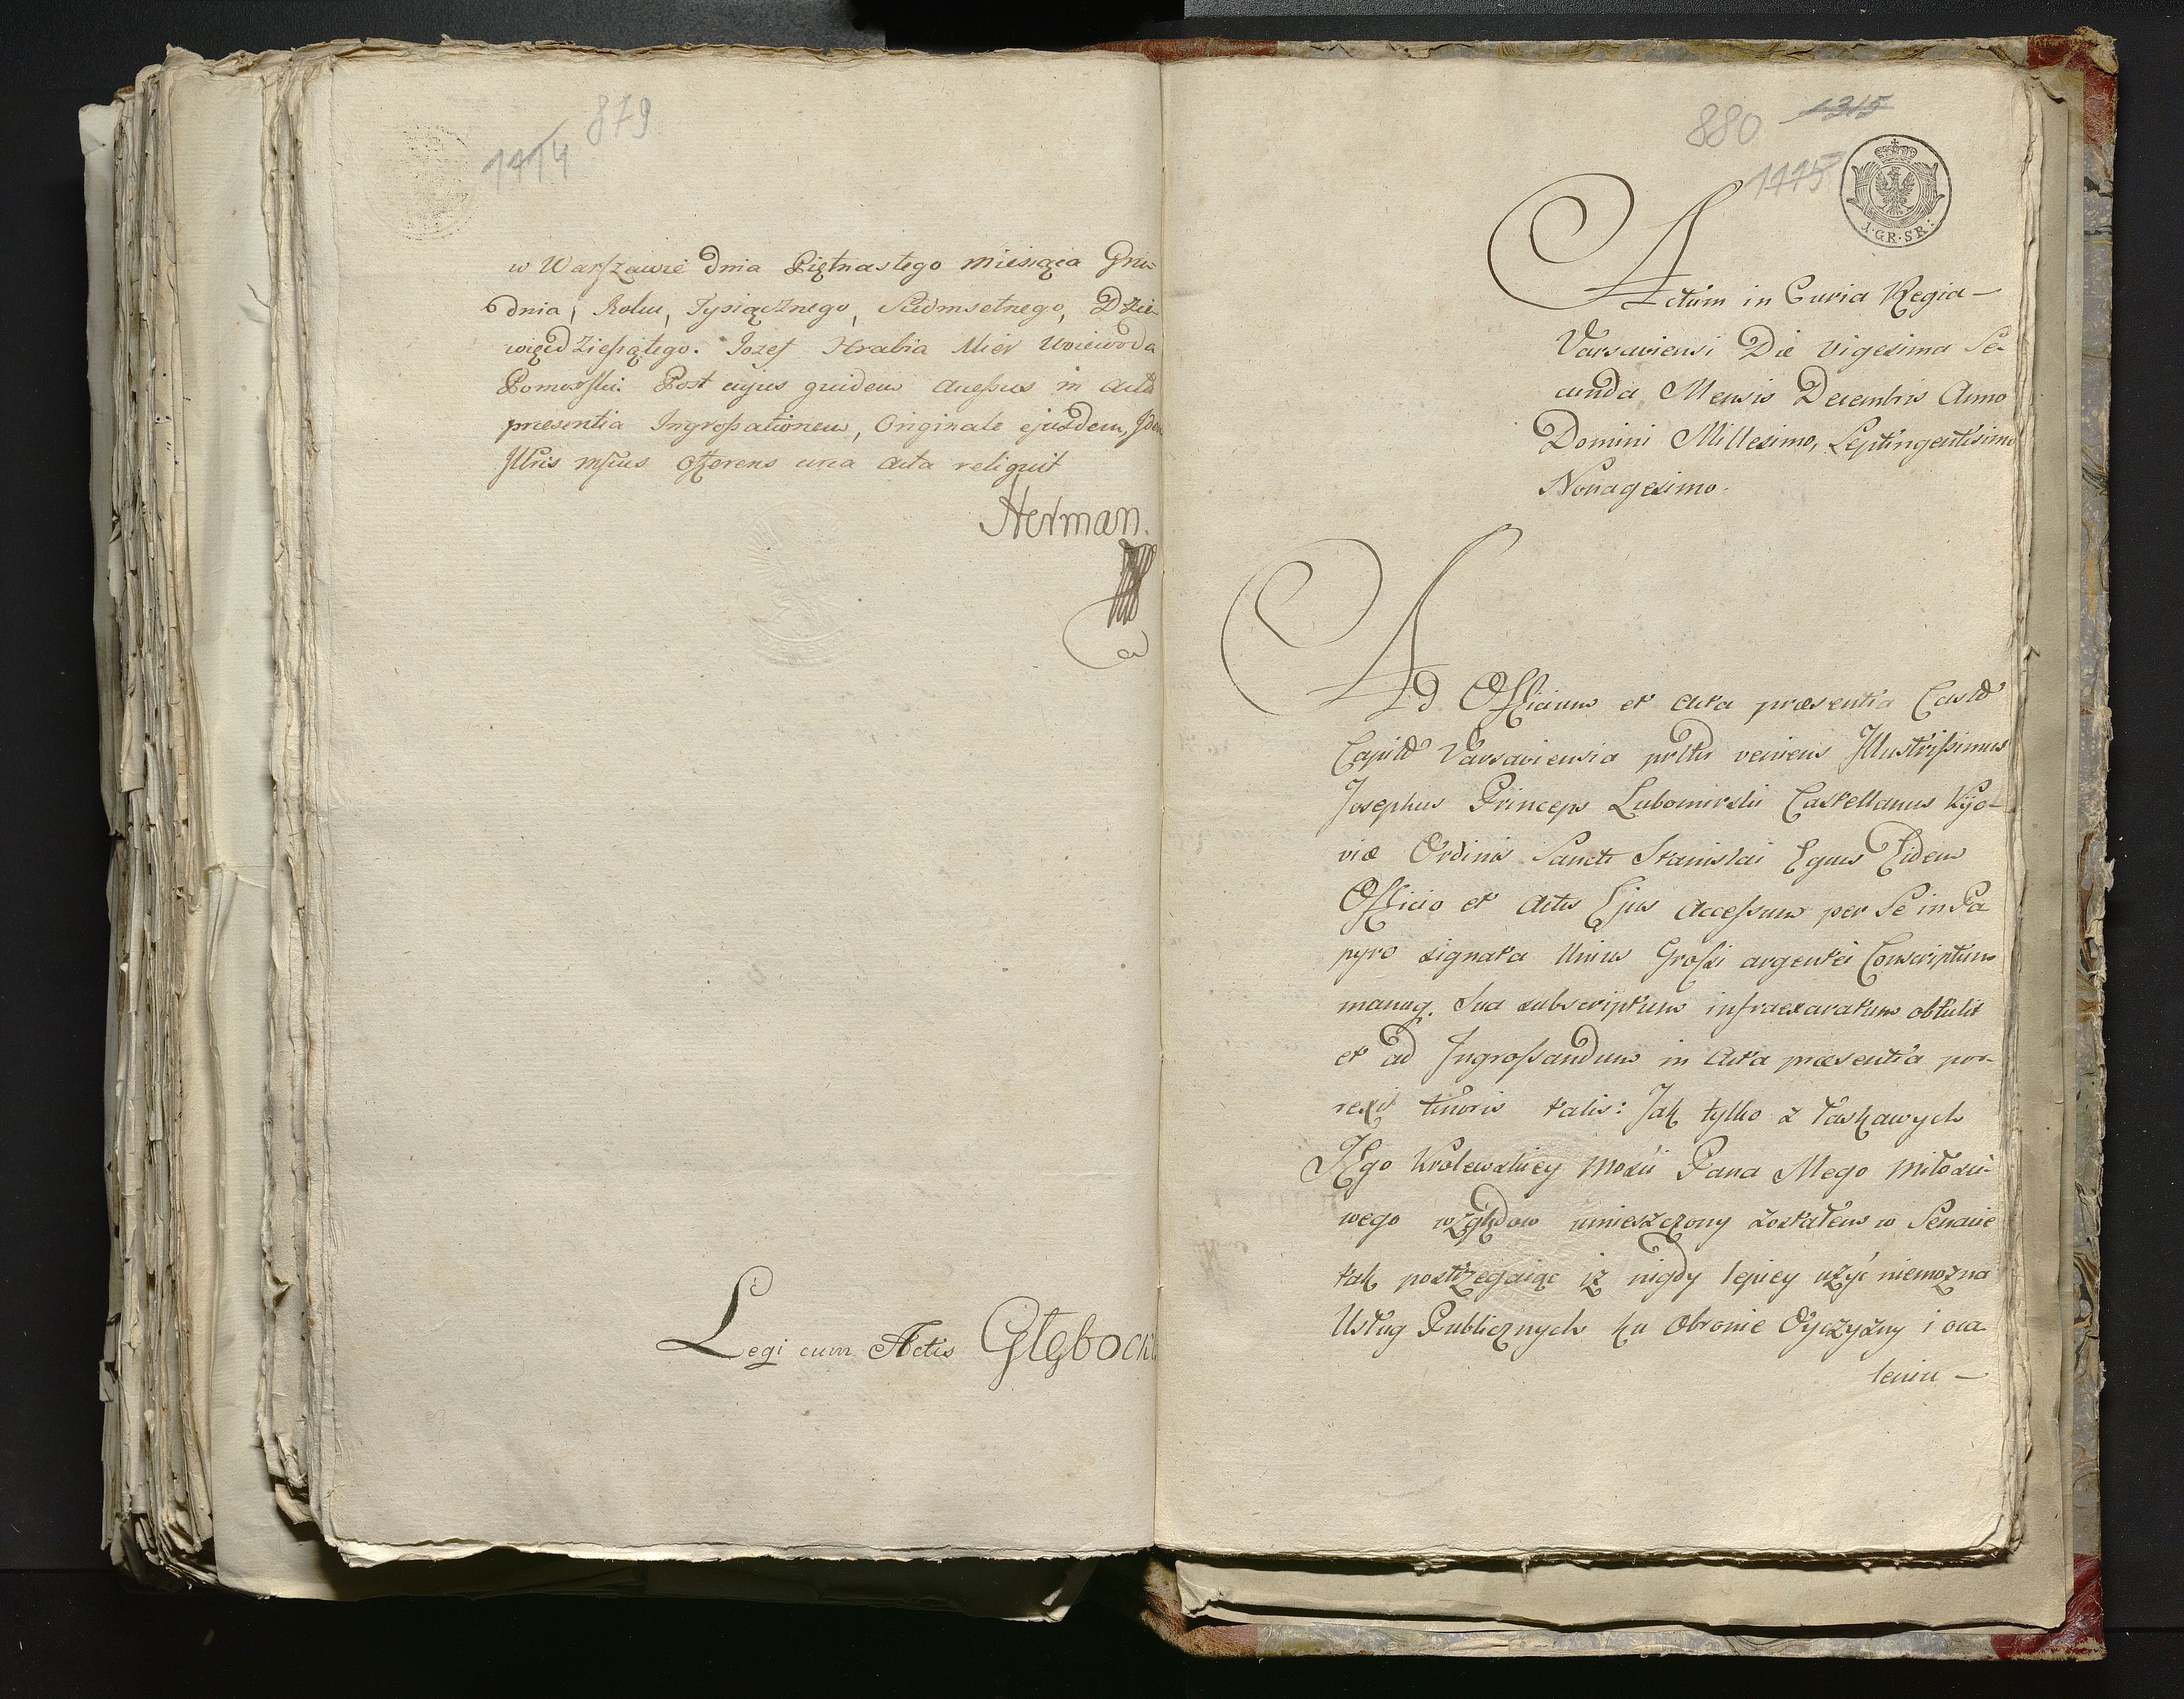 879
1414
w Warszawie dnia Piętnastego Miesiąca Gru-
dnia, Roku, Tysiącznego, Siedmsetnego, Dzie-
więćdziesiątego. Jozef Hrabia Mier Woiewoda
Pomorski. Post cujus quidem Anessus in Acta
presentia Ingrossationem, Originale ejusdem, Idem
Illris mscus Offerens circa Acta reliquit
Herman.
Legi cum Actis Głębocki
880 1315
1415
1·GR·SR·
Actum in Curia Regia
Varsaviensi Die Vigesima Se-
cunda Mensis Decembris Anno
Domini Millesimo, Septingentesimo
Nonagesimo.
Ad Officium et Acta præsentia Castr
Capitl Varsaviensia prltr veniens Illustrissimus
Josephus Princeps Lubomirski Castellanus Kijo-
viæ Ordinis Sancti Stanislai Eques Eidem
Officio et Actis Ejus Accessum per Se in Pa
pyro signata Unius Grossi argentei Conscriptum
manuq. Sua subscriptum infraexaratum obtulit
et ad Ingrossandum in Acta præsentia por-
rexit tenoris talis: Jak tylko z łaskawych
JEgo Krolewskiey Mości Pana Mego Miłości-
wego względow umieszczony zostałem w Senacie
tak postrzegaiąc iż nigdy lepiey użyć niemożna
Usług Publicznych ku Obronie Oyczyzny i oca-
leniu —